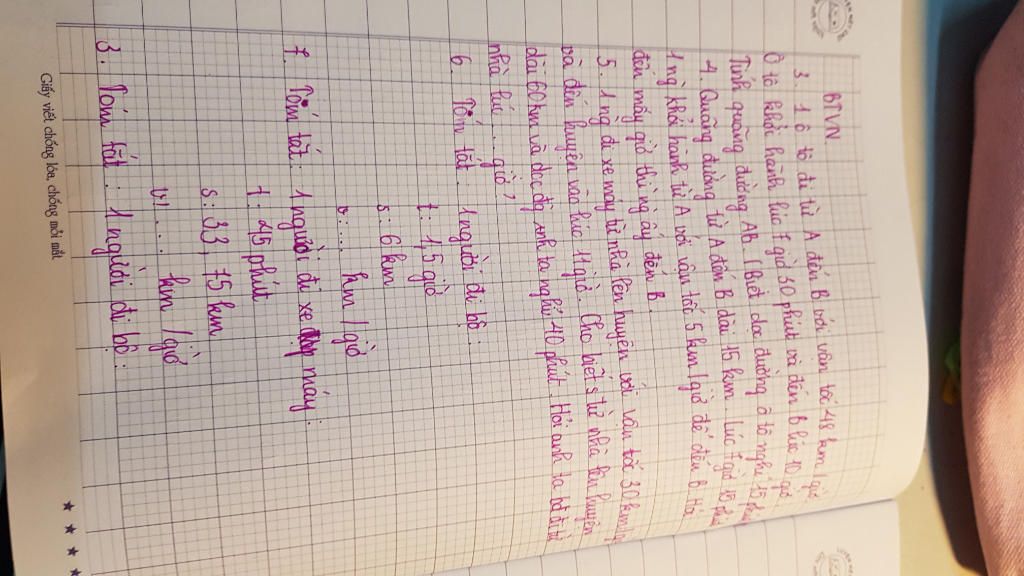 BTVN
3. 1 ô tô đi từ A đến B với vân tốc 48 km/giờ
Ô tô khởi hành lúc 7 giờ 30 phút và đến B lúc 10 giờ
Tính quãng đường AB. (Biết dọc đường ô tô nghỉ 15 phút
4. Quãng đường từ A đến B dài 15 km. Lúc 7 giờ 15 phút
1 ng khởi hành từ A với vân tốc 5 km/giờ để đến B. Hỏi
đến mấy giờ thì ng ấy đến B.
5. 1 ng đi xe máy từ nhà lên huyện với vân tốc 30 km/g
và đến huyện vào lúc 11 giờ. Cho biết s từ nhà lên huyện
dài 60 km và dọc đg anh ta nghỉ 40 phút. Hỏi anh ta bđ đi từ
nhà lúc ... giờ?
6. Tóm tắt: 1 người đi bộ:
t: 1,5 giờ
s: 6 km
v: ... km/giờ
7. Tóm tắt: 1 người đi xe máy:
t: 45 phút
s: 33,75 km
v: ... km/giờ
3. Tóm tắt: 1 người đi bộ:
Giấy viết chống lóa, chống mỏi mắt